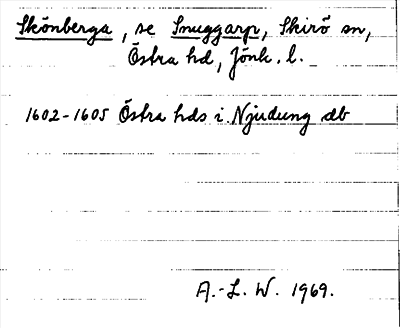 Skönberga, se Snuggarp, Skirö sn,
Östra hd, Jönk. l.
1602-1605 Östra hds i Njudung db
A.-L. W. 1969.